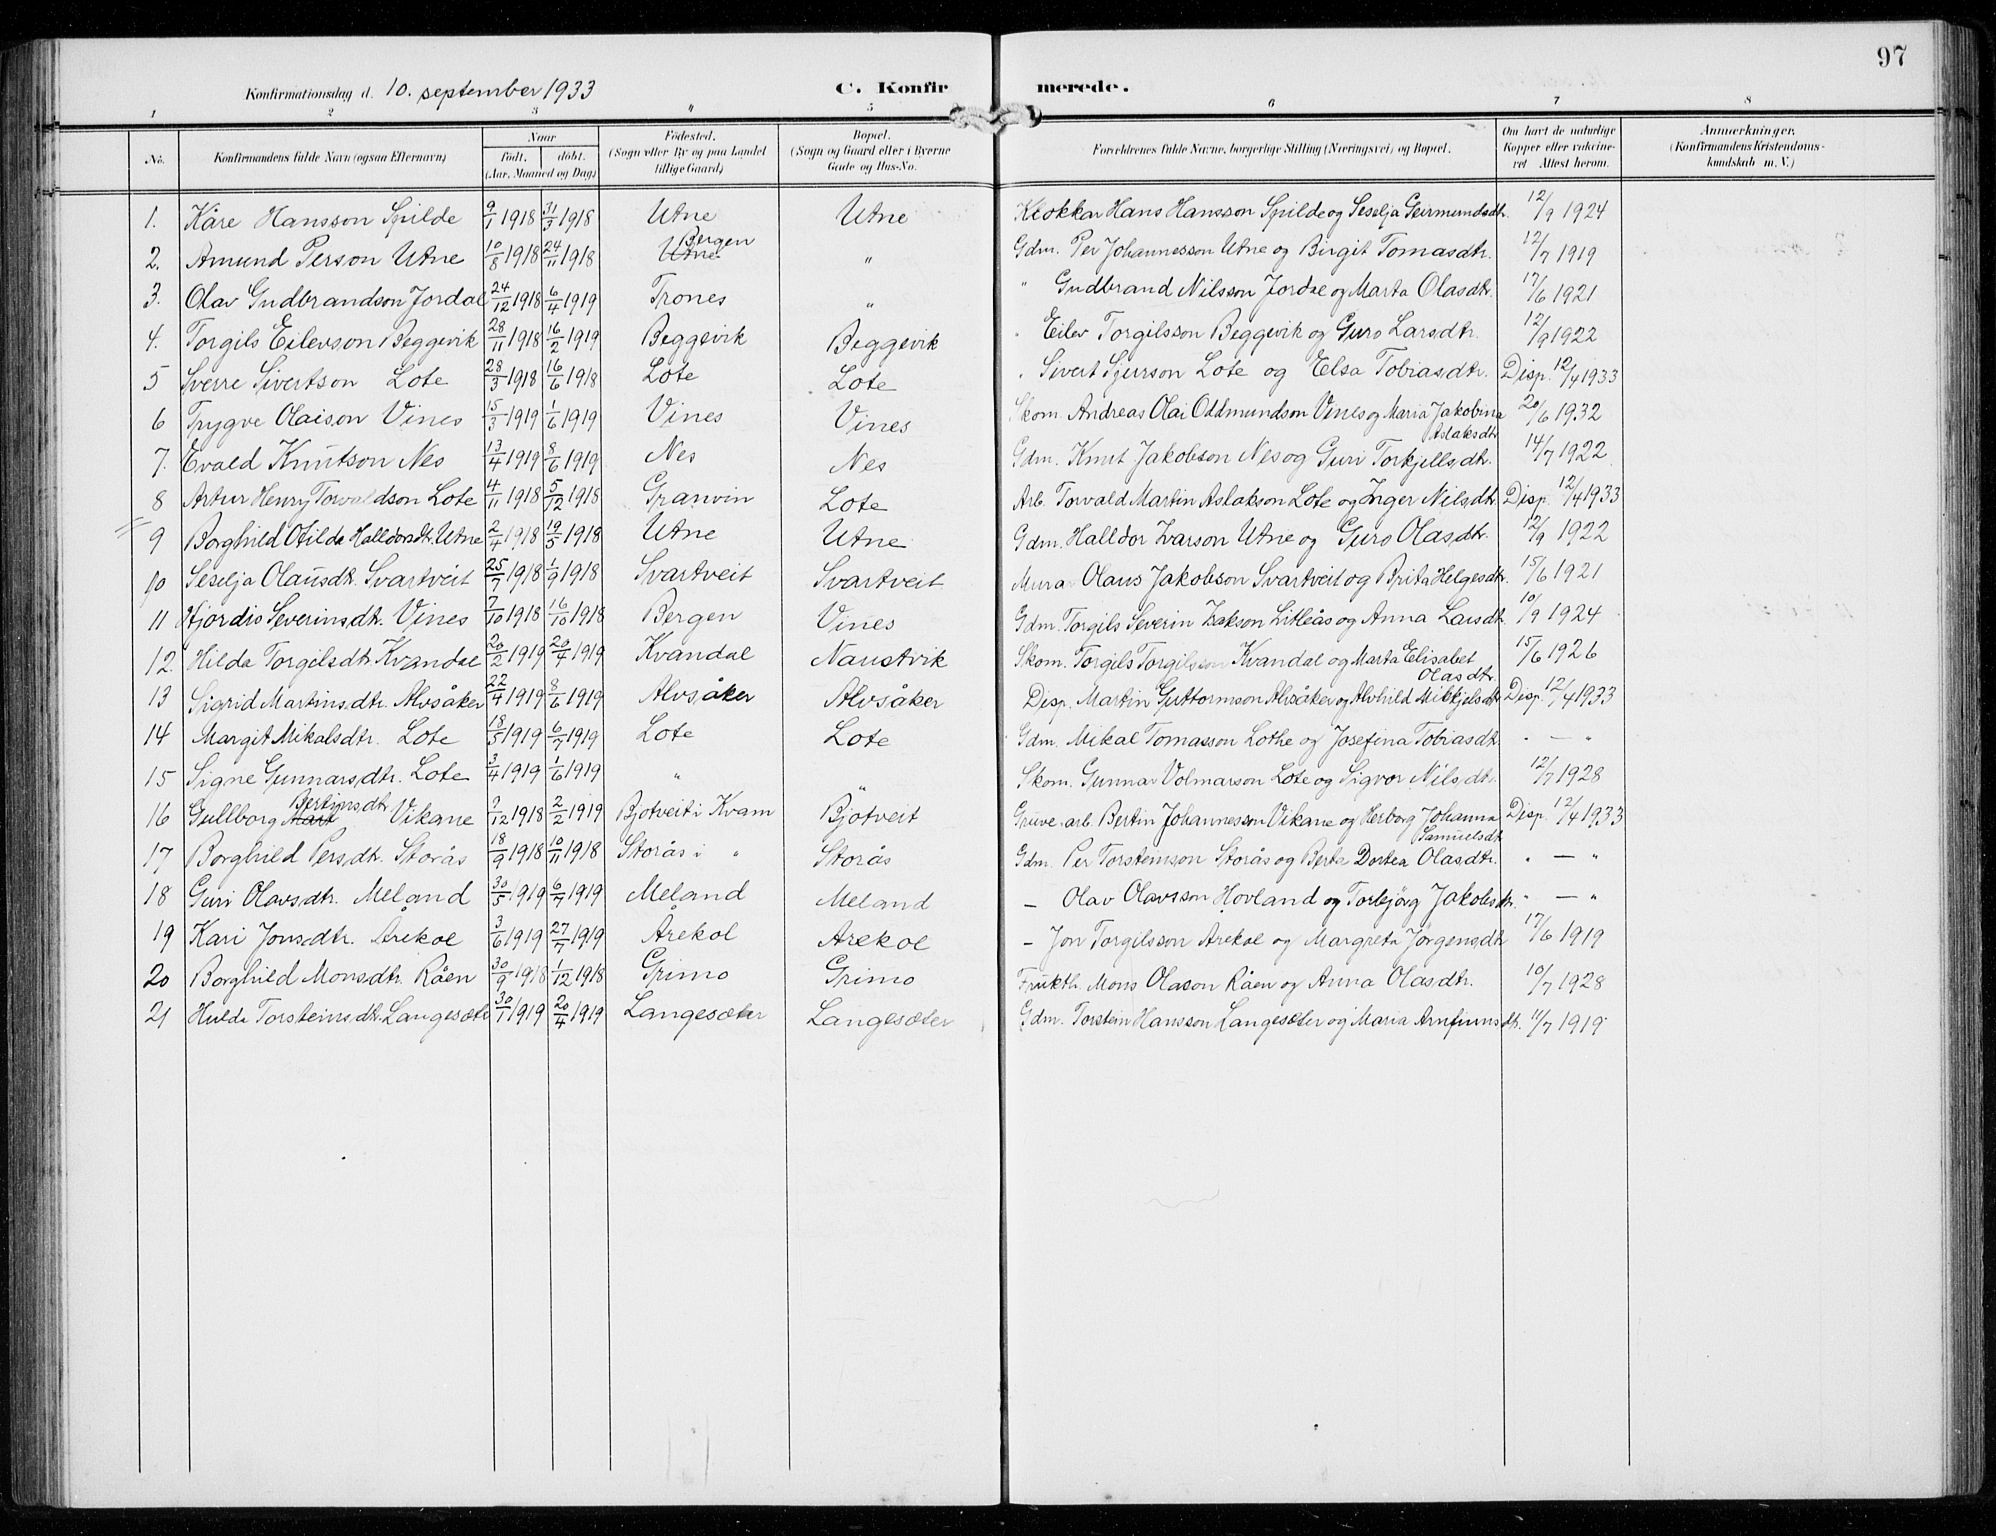 97
Konfirmationsdag d. 10. september 1933 C. Konfirmerede.
1 2 3 4 5 6 7 8
No. Konfirmandens fulde Navn (ogsaa Efternavn) Naar født. døbt. (Aar, Maaned og Dag) Fødested. (Sogn eller By og paa Landet tillige Gaard) Bopæl. (Sogn og Gaard eller i Byerne Gade og Hus-No. Forældrenes fulde Navne, borgerlige Stilling (Næringsvei) og Bopæl. Om havt de naturlige Kopper eller vaccineret Attest herom. Anmærkninger. (Konfirmandens Kristendomskundskab m. V.)
1. Kåre Hansson Spilde 9/1 1918 31/3 1918 Utne Utne Klokkar Hans Hansson Spilde og Seselja Geirmundsdtr. 12/9 1924
2. Amund Person Utne 10/8 1918 24/11 1918 Utne Bergen " Gdm. Per Johannesson Utne og Birgit Tomasdtr. 12/7 1919
3. Olav Gudbrandson Jordal 24/12 1918 6/4 1919 Trones " " Gudbrand Nilsson Jordal og Marta Olasdtr. 17/6 1921
4. Torgils Eilevson Beggevik 28/11 1918 16/2 1919 Beggevik Beggevik " Eilev Torgilsson Beggevik og Guro Larsdtr. 12/9 1922
5 Sverre Sivertson Lote 28/3 1918 16/6 1918 Lote Lote " Sivert Sjurson Lote og Elsa Tobiasdtr. Disp. 12/4 1933
6 Trygve Olaison Vines 15/3 1919 1/6 1919 Vines Vines Skom. Andreas Olai Oddmundson Vines og Maria Jakobina Aslaksdtr 20/6 1932
7. Evald Knutson Nes 13/4 1919 8/6 1919 Nes Nes Gdm. Knut Jakobson Nes og Guri Torkjellsdtr. 14/7 1922
8 Artur Henry Torvaldson Lote 4/11 1918 5/12 1918 Granvin Lote Arb. Torvald Martin Aslakson Lote og Inger Nilsdtr. Disp. 12/4 1933
9 Borghild Otilda Halldorsdtr. Utne 2/4 1918 19/5 1918 Utne Utne Gdm. Halldor Ivarson Utne og Guro Olasdtr. 12/9 1922
10 Seselja Olausdt. Svartveit 25/7 1918 1/9 1918 Svartveit Svartveit Murar Olaus Jakobson Svartveit og Brita Helgesdtr. 15/6 1921
11 Hjørdis Severinsdtr. Vines 7/10 1918 16/10 1918 Bergen Vines Gdm. Torgils Severin Isakson Litleås og Anna Larsdt. 10/9 1924
12. Hilda Torgilsdtr. Kvandal 20/2 1919 20/4 1919 Kvandal Naustvik Skom. Torgils Torgilsson Kvandal og Marta Elisabet Olasdtr. 15/6 1926
13 Sigrid Martinsdtr. Alvsåker 22/4 1919 8/6 1919 Alvsåker Alvsåker Disp. Martin Guttormson Alvsåker og Alvhild Mikkjelsdtr Disp. 12/4 1933
14 Margit Mikalsdtr. Lote 18/5 1919 6/7 1919 Lote Lote Gdm. Mikal Tomasson Lothe og Josefina Tobiasdt. " — "
15 Signe Gunnarsdtr. Lote 3/4 1919 1/6 1919 " " Skom. Gunnar Volmarson Lote og Sigvor Nilsdt. 12/7 1928
16 Gullborg Bertinsdtr Vikane 7/12 1918 2/2 1919 Bjotveit i Kvam Bjotveit Gruve.arb. Bertin Johannesson Vikane og Herborg Johanna Samuelsdt Disp. 12/4 1933
17 Borghild Persdtr. Storås 18/9 1918 10/11 1918 Storås i " Storås Gdm. Per Torsteinson Storås og Berta Dortea Olasdtr. " — "
18 Guri Olavsdtr. Meland 30/5 1919 6/7 1919 Meland Meland — Olav Olavsson Hovland og Torbjörg Jakobsdtr. " — "
19 Kari Jonsdtr. Årekol 3/6 1919 27/7 1919 Årekol Arekol — Jon Torgilsson Arekol og Margreta Jørgensdtr 17/6 1919
20 Borghild Monsdtr. Råen 30/9 1918 1/12 1918 Grimo Grimo Frukth. Mons Olason Råen og Anna Olasdtr. 10/7 1928
21 Hulda Torsteinsdtr. Langesæter 30/1 1919 20/4 1919 Langesæter Langesæter Gdm. Torstein Hansson Langesæter og Maria Arnfinnsdtr. 11/7 1919